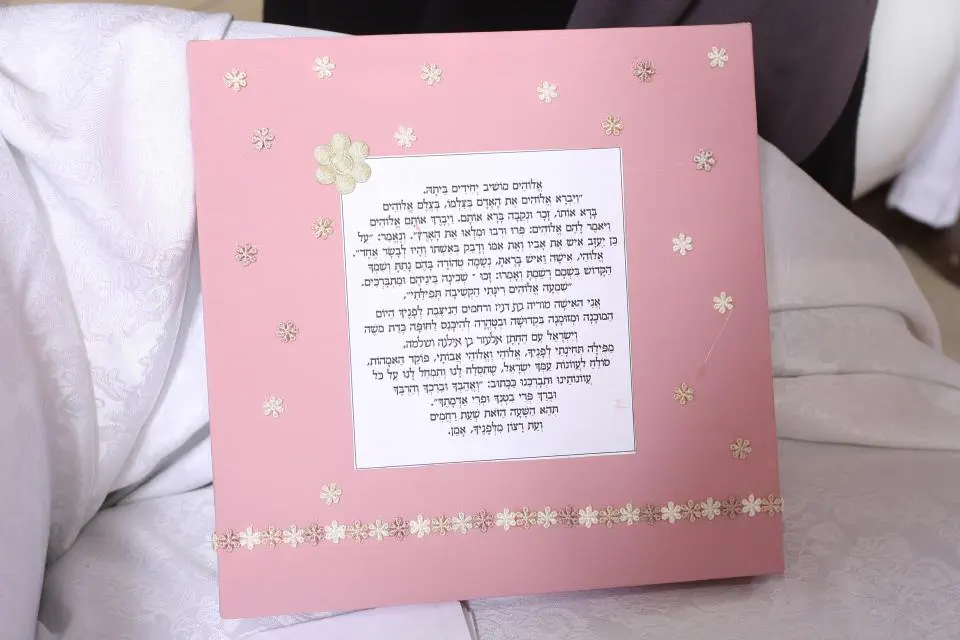 אֱלוֹהִים מוֹשִׁיב יְחִידִים בַּיְתָה.
"וַיִּבְרָא אֱלוֹהִים אֶת הָאָדָם בְּצַלְמוֹ, בְּצֶלֶם אֱלוֹהִים
בָּרָא אוֹתוֹ, זָכָר וּנְקֵבָה בָּרָא אוֹתָם. וַיְבָרֶךְ אוֹתָם אֱלוֹהִים
וַיֹּאמֶר לָהֶם אֱלוֹהִים: פְּרוּ וּרְבוּ וּמִלְאוּ אֶת הָאָרֶץ". וְנֶאֱמַר: "עַל
כֵּן יַעֲזָב אִישׁ אֶת אָבִיו וְאֶת אִמּוֹ וְדָבַק בְּאִשְׁתּוֹ וְהָיוּ לְבָשָׂר אֶחָד".
אֱלוֹהַי, אִישָׁה וְאִישׁ בָּרָאתָ, נְשָׁמָה טְהוֹרָה בָּהֶם נָתַתָּ וְשִׁמְךָ
הַקָּדוֹשׁ בִּשְׁמָם רָשַׁמְתָּ וְאָמַרְתָּ: זָכוּ - שְׁכִינָה בֵּינֵיהֶם וּמִתְבָּרְכִים.
"שִׁמְעָה אֱלוֹהִים רִינָּתִי הַקְשִׁיבָה תְּפִילָּתִי",
אֲנִי הָאִישָׁה מוריה בת דניז ורחמים הַנִּיצֶּבֶת לְפָנֶיךָ הַיּוֹם
הַמּוּכָנָה וּמְזוּמָּנָה בִּקְדוּשָׁה וּבְטָהֳרָה לְהִיכָּנֵס לַחוּפָּה כְּדַת מֹשֶׁה
וְיִשְׂרָאֵל עִם הֶחָתָן אלעזר בן אילנה ושלמה,
מַפִּילָה תְּחִינָּתִי לְפָנֶיךָ, אֱלוֹהַי וֶאֱלוֹהֵי אֲבוֹתַי, פּוֹקֵד הָאִמָּהוֹת,
סוֹלֵחַ לַעֲווֹנוֹת עַמְּךָ יִשְׂרָאֵל, שֶׁתִּסְלַח לָנוּ וְתִמְחַל לָנוּ עַל כָּל
עֲווֹנוֹתֵינוּ וּתְבָרְכֵנוּ כַּכָּתוּב: "וַאֲהֵבְךָ וּבֵרַכְךָ וְהִרְבֶּךָ
וּבֵרַךְ פְּרִי בִטְנְךָ וּפְרִי אַדְמָתֶךָ".
תְּהֵא הַשָּׁעָה הַזֹּאת שְׁעַת רַחֲמִים
וְעֵת רָצוֹן מִלְּפָנֶיךָ, אָמֵן.